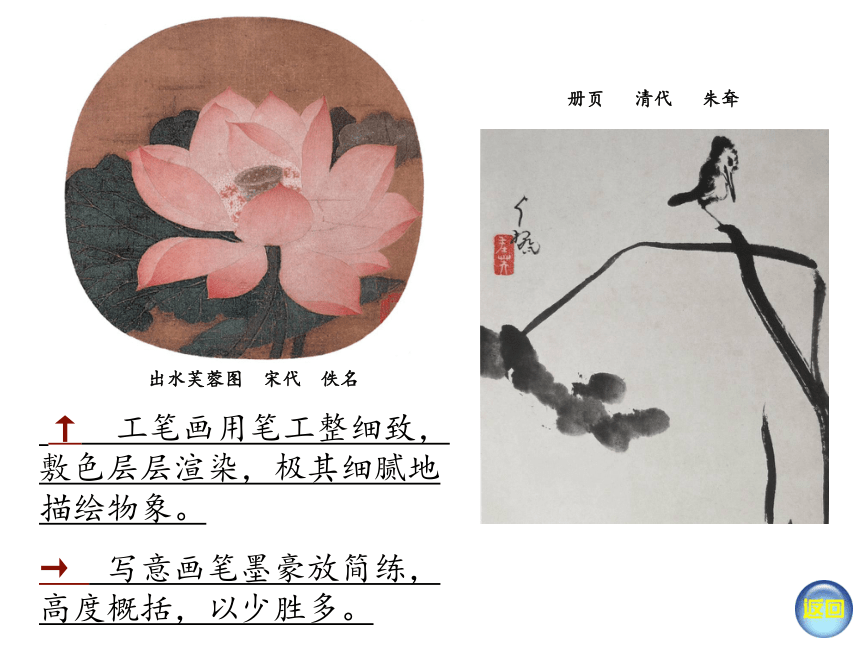 册页 清代 朱耷
出水芙蓉图 宋代 佚名
↑ 工笔画用笔工整细致，
敷色层层渲染，极其细腻地
描绘物象。
→ 写意画笔墨豪放简练，
高度概括，以少胜多。
返回